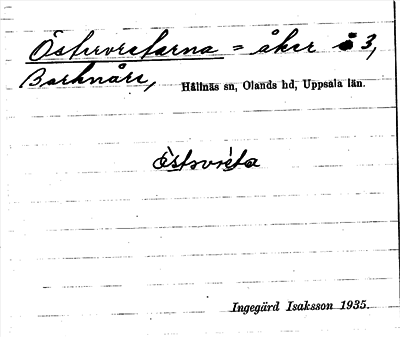 Östervretarna = åker å 3,
Barknåre, Hållnäs sn, Olands hd, Uppsala län.
Ingegärd Isaksson 1935.